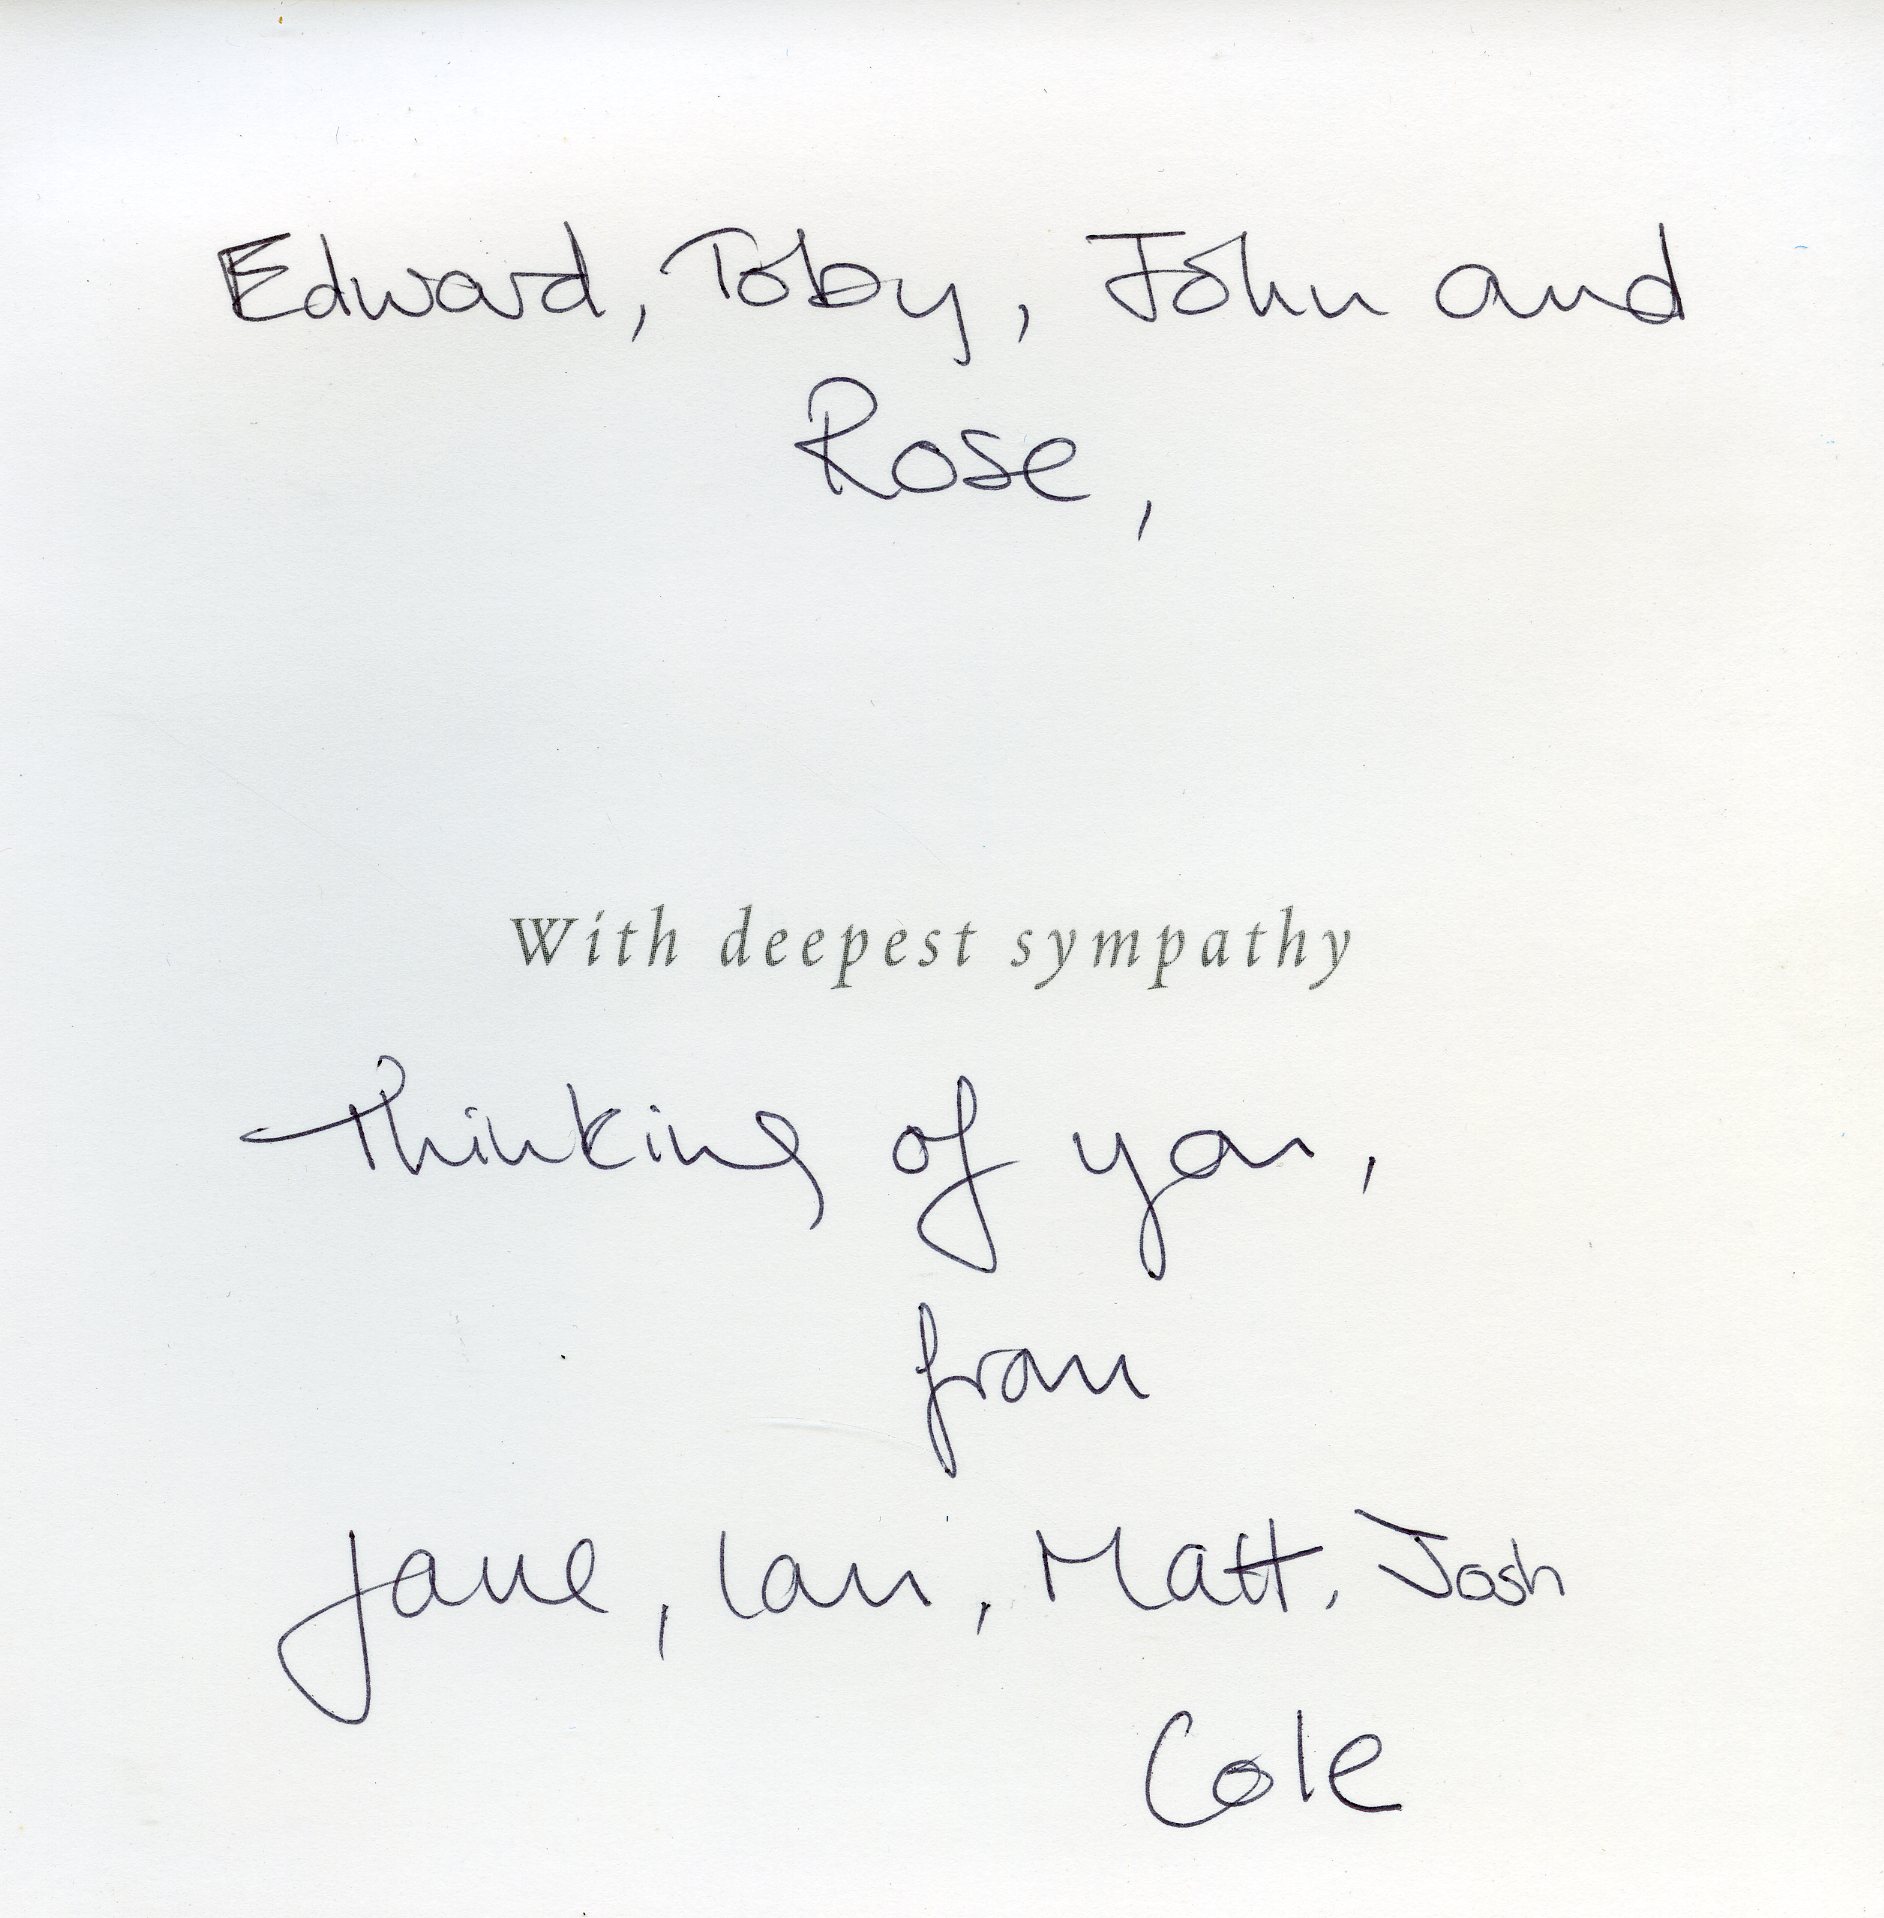 Edward, Toby, John and
Rose,
With deepest sympathy
Thinking of you,
from
Jane, Ian, Matt, Josh
Cole